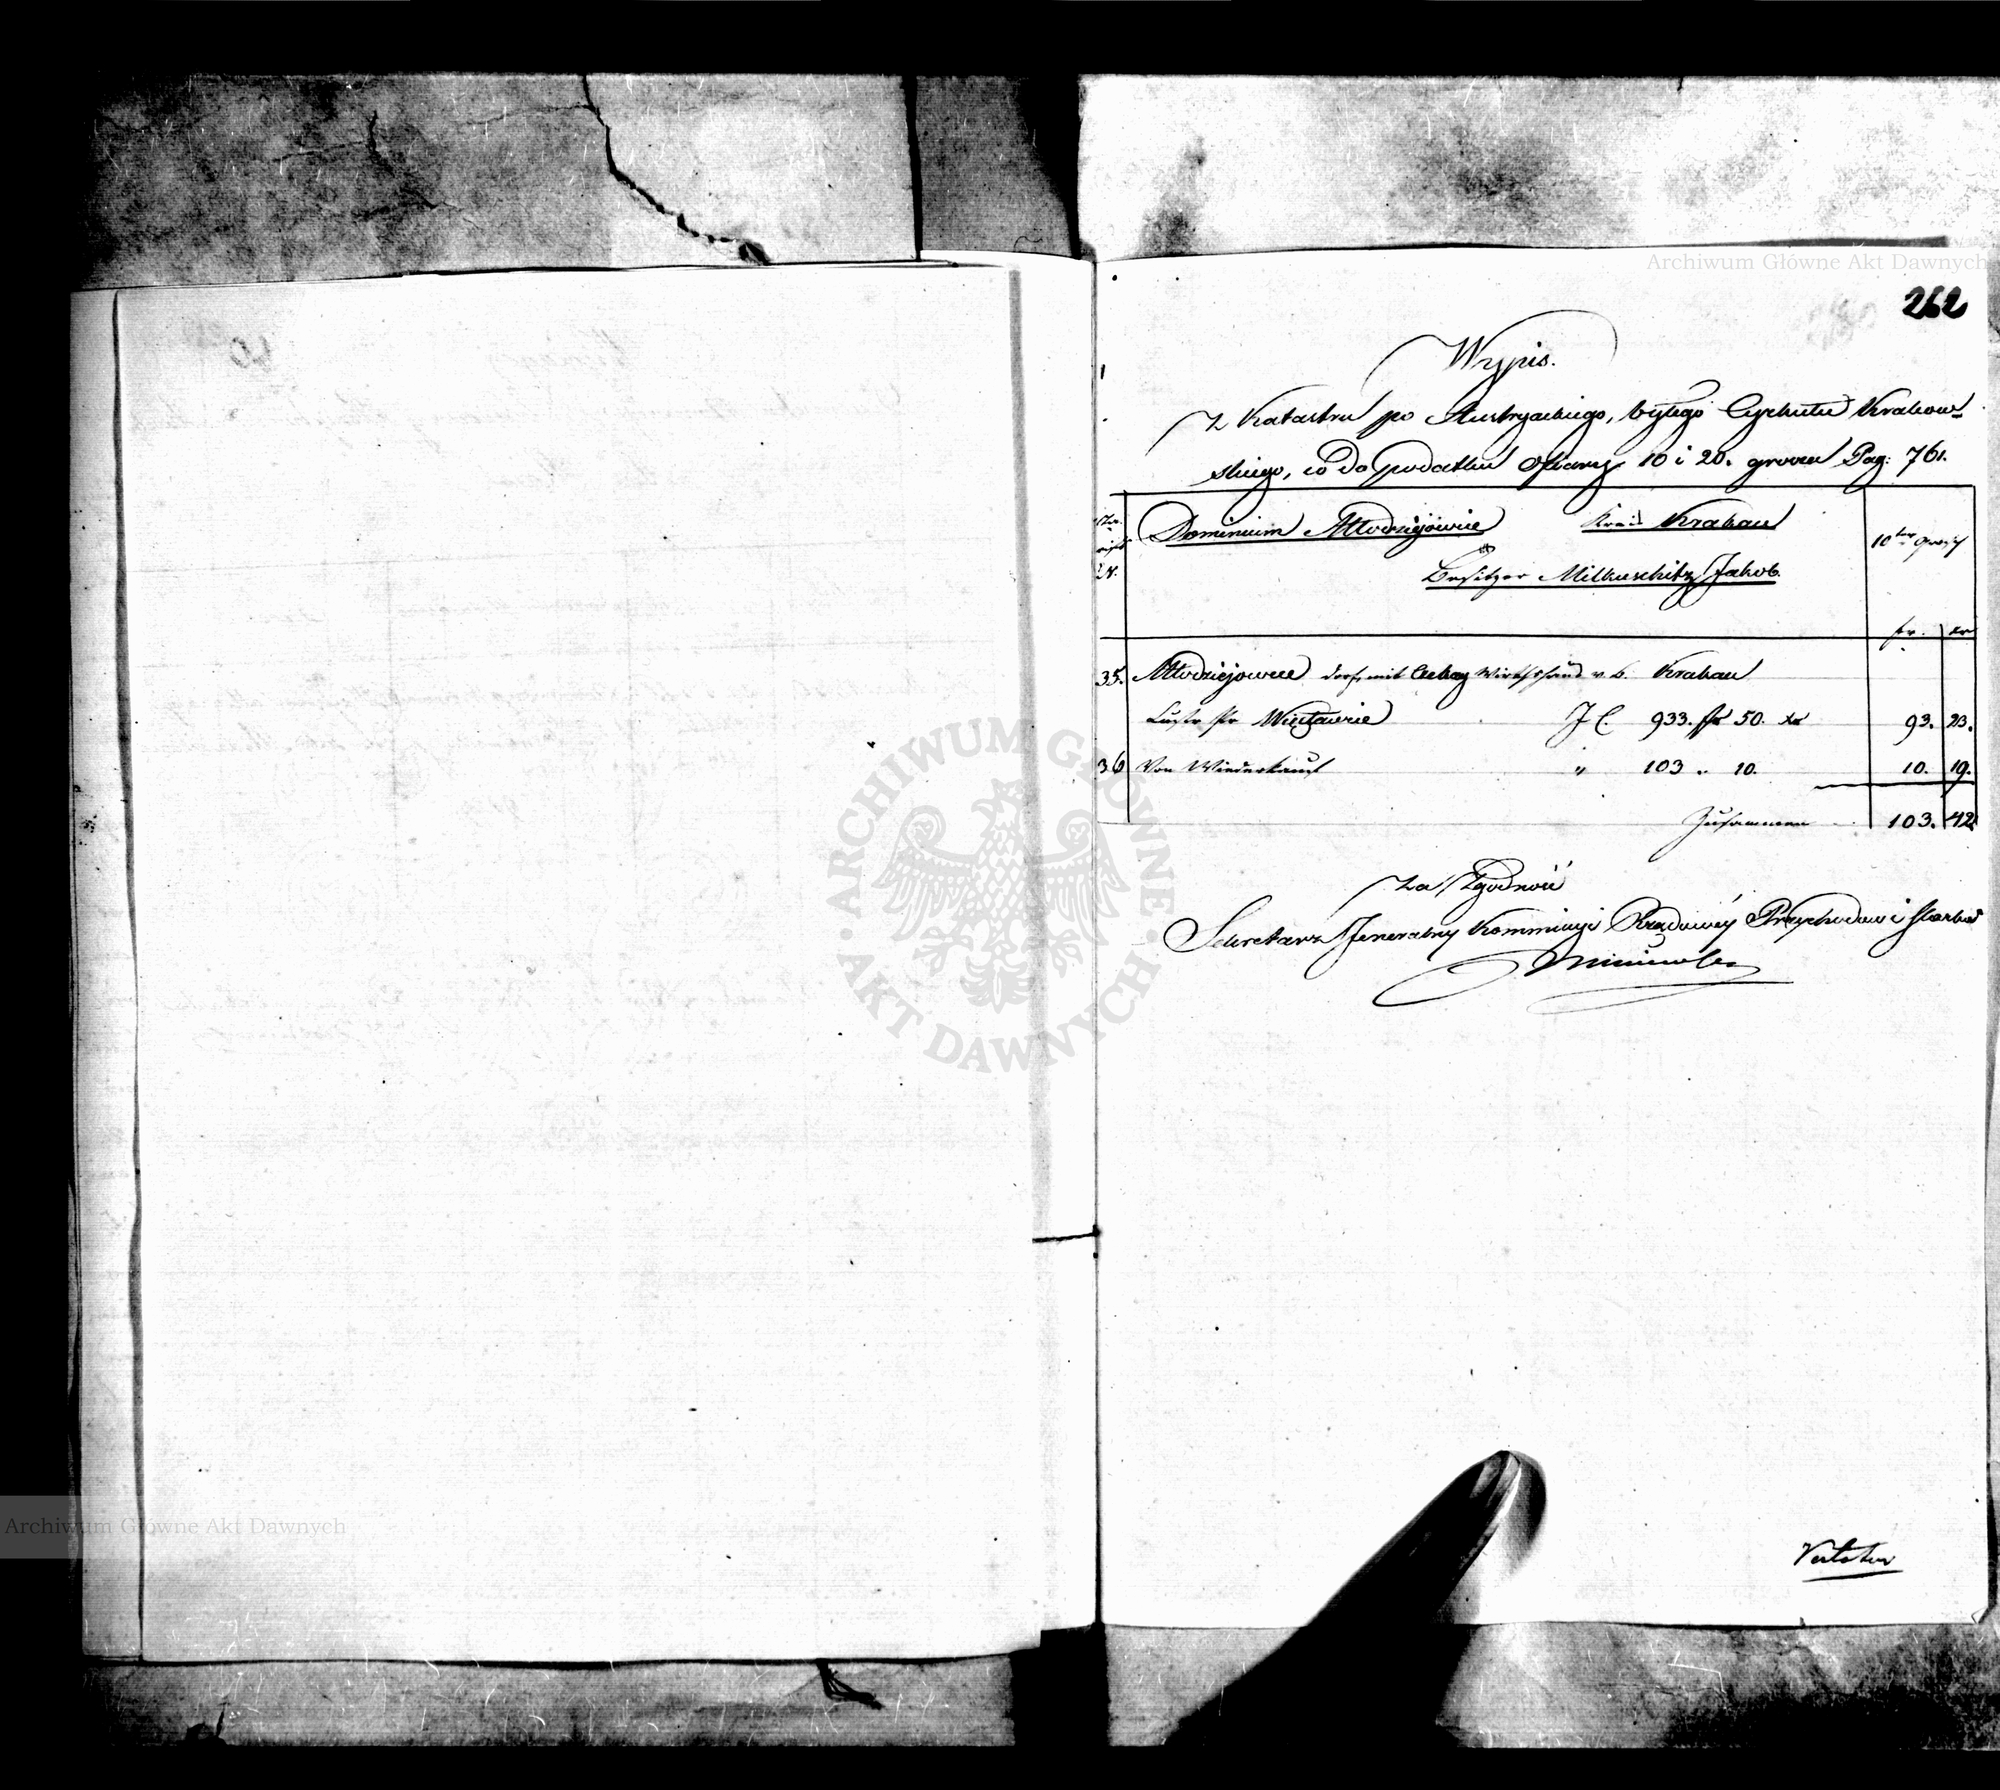 Archiwum Główne Akt Dawnych
262
Wypis.
z Katastru po Austryackiego, byłego Cyrkułu Krakow-
skiego, co do podatku Ofiary 10 i 20. grosza Pag: 761.
Dominium Młodziejowice Kreis Krakau
10ter Grosch
Besitzer Milkuschitz Jakob.
fr. xr
35. Młodziejowice Dorf, mit Wirthshaus v. b. Krakau
Wiectawice J C. 933. fr 50. xr 93. 23.
36 Von Wiederkauf " 103 " 10. 10. 19.
Zusammen 103. 42
Za Zgodność
Sekretarz Jeneralny Kommissyi Rządowéy Przychodów i Skarbu
ARCHIWUM GŁÓWNE
AKT DAWNYCH
Archiwum Główne Akt Dawnych